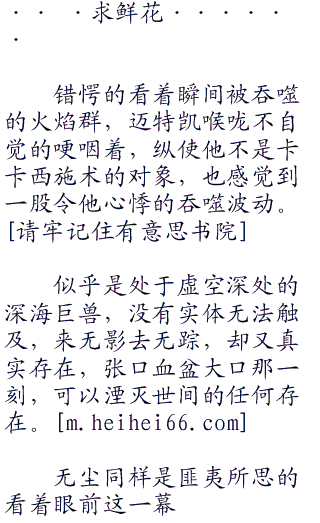 · · · 求鲜花 · · · · ·
·
错愕的看着瞬间被吞噬
的火焰群，迈特凯喉咙不自
觉的哽咽着，纵使他不是卡
卡西施术的对象，也感觉到
一股令他心悸的吞噬波动。
[请牢记住有意思书院]
似乎是处于虚空深处的
深海巨兽，没有实体无法触
及，来无影去无踪，却又真
实存在，张口血盆大口那一
刻，可以湮灭世间的任何存
在。[m.heihei66.com]
无尘同样是匪夷所思的
看着眼前这一幕